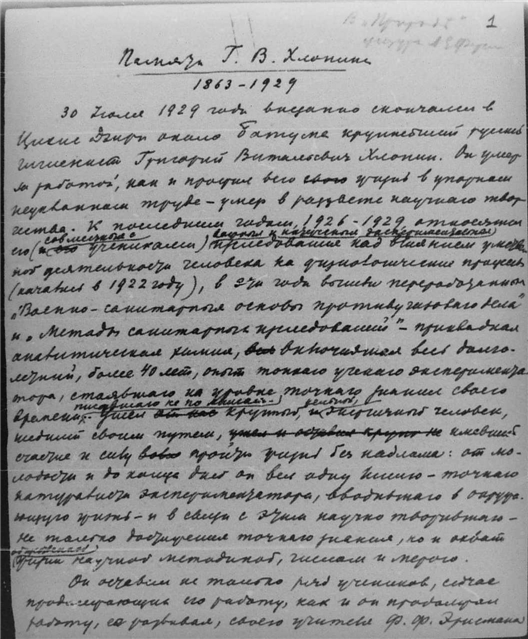 1
В "Природе"
Памяти Г. В. Хлопина
1863-1929
30 Июля 1929 года внезапно скончался в
Цихис Дзири около Батума крупнейший русский
гигиенист Григорий Витальевич Хлопин. Он умер
за работой, как и прожил всего свою жизнь в упорном
неустанном труде – умер в расцвете научного твор-
чества. К последним годам, 1926-1929 относятся
совместные
его (и его учениками) исследования над влиянием умствен-
ной деятельности человека на физиологические процессы
(начатые в 1922 году), в эти годы вышли переработанные
"Военно-санитарные основы противугазового дела"
и "Методы санитарных исследований" – прикладная
аналитическая химия, включившая весь долго-
летний, более 40 лет, опыт тонкого ученого экспримента-
тора, стоявшего на уровне точного знания своего
времени. Ушел от нас крупный, и энергичный человек,
шедший своим путем, имевший
счастье и силу прожить жизнь без надлома: от мо-
лодости и до конца дней он вел одну линию – точного
натуралиста экспериментатора, вводившего в окружа-
ющую жизнь – и в связи с этим научно творившего –
не только достижения точного знания, но и охват
жизни научной методикой, числом и мерою.
Он оставил не только ряд учеников, сейчас
продолжающих его работу, как и он продолжал
работу, ее развивая, своего учителя Ф. Ф. Эрисмана